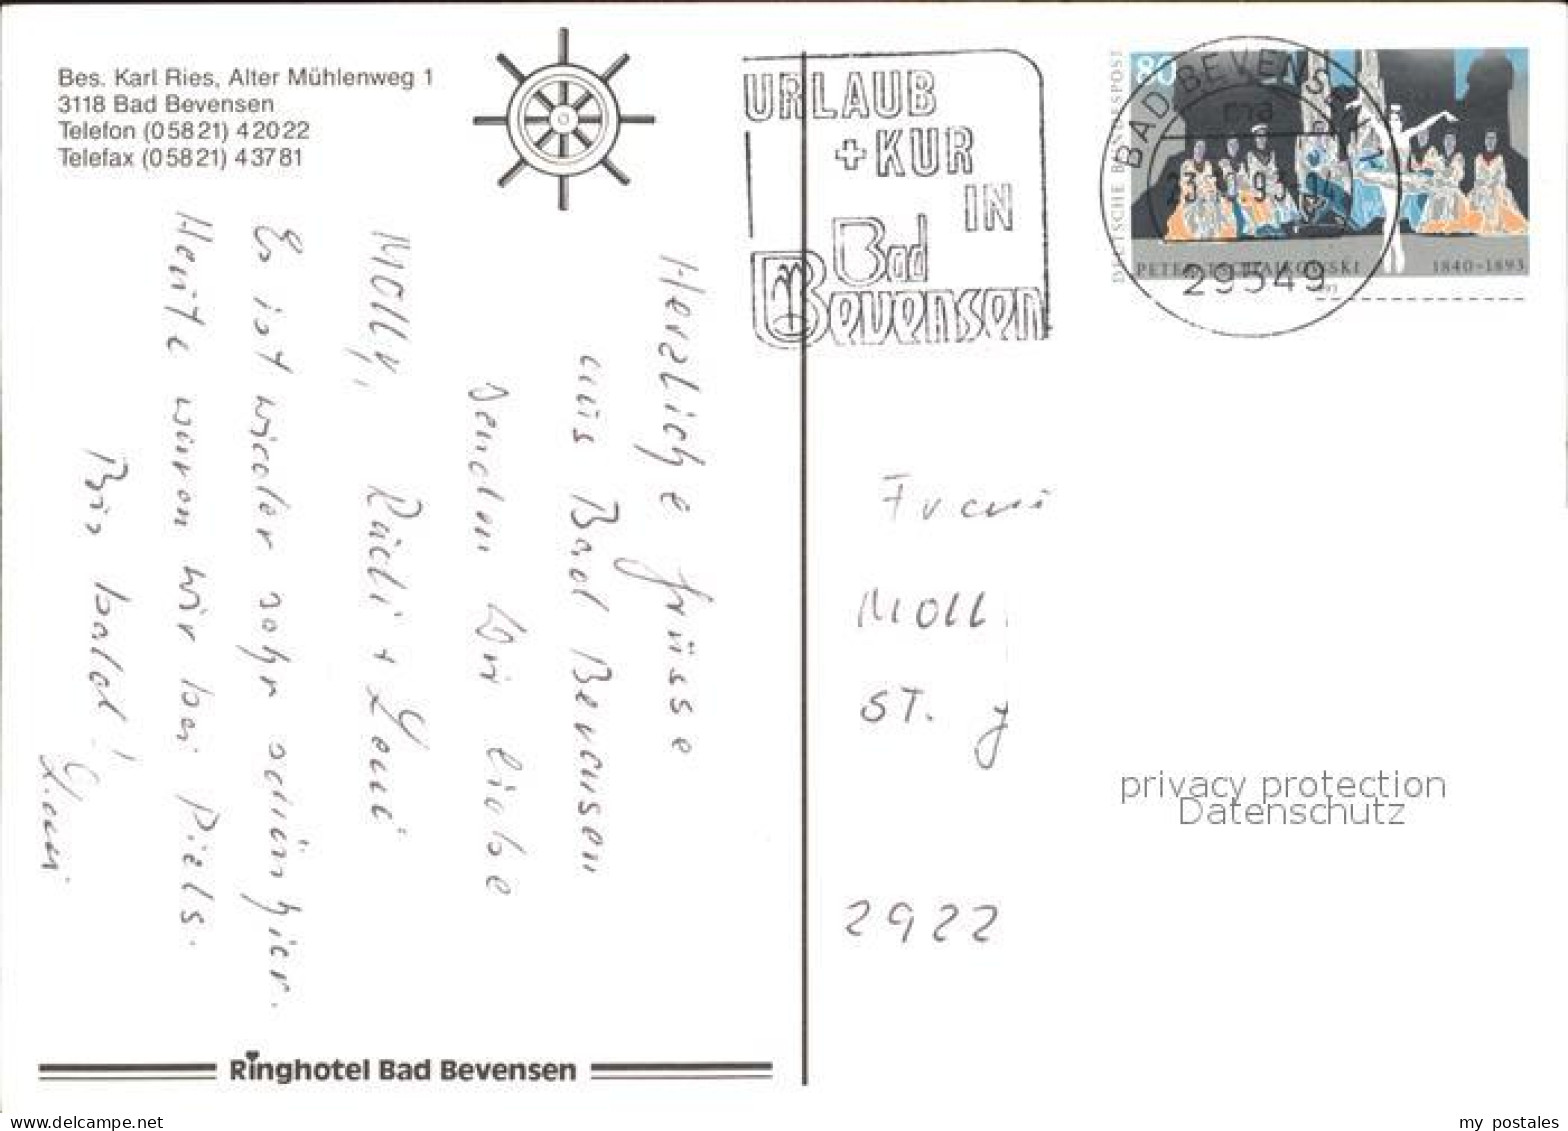 Bes. Karl Ries, Alter Mühlenweg 1
3118 Bad Bevensen
Telefon (05821) 42022
Telefax (05821) 43781
URLAUB
+ KUR
IN
Bad
Bevensen
80
DEUTSCHE BUNDESPOST
PETER TSCHAIKOWSKI 1840-1893
BAD BEVENSEN 1
ma
29549
Herzliche Grüsse
aus Bad Bevensen
senden Dir liebe
Molly,
Es ist wieder sehr schön hier.
Heute waren wir bei Piels.
Bis bald!
Frau
MOLL
ST. J
2922
privacy protection
Datenschutz
Ringhotel Bad Bevensen
delcampe.net
my_postales